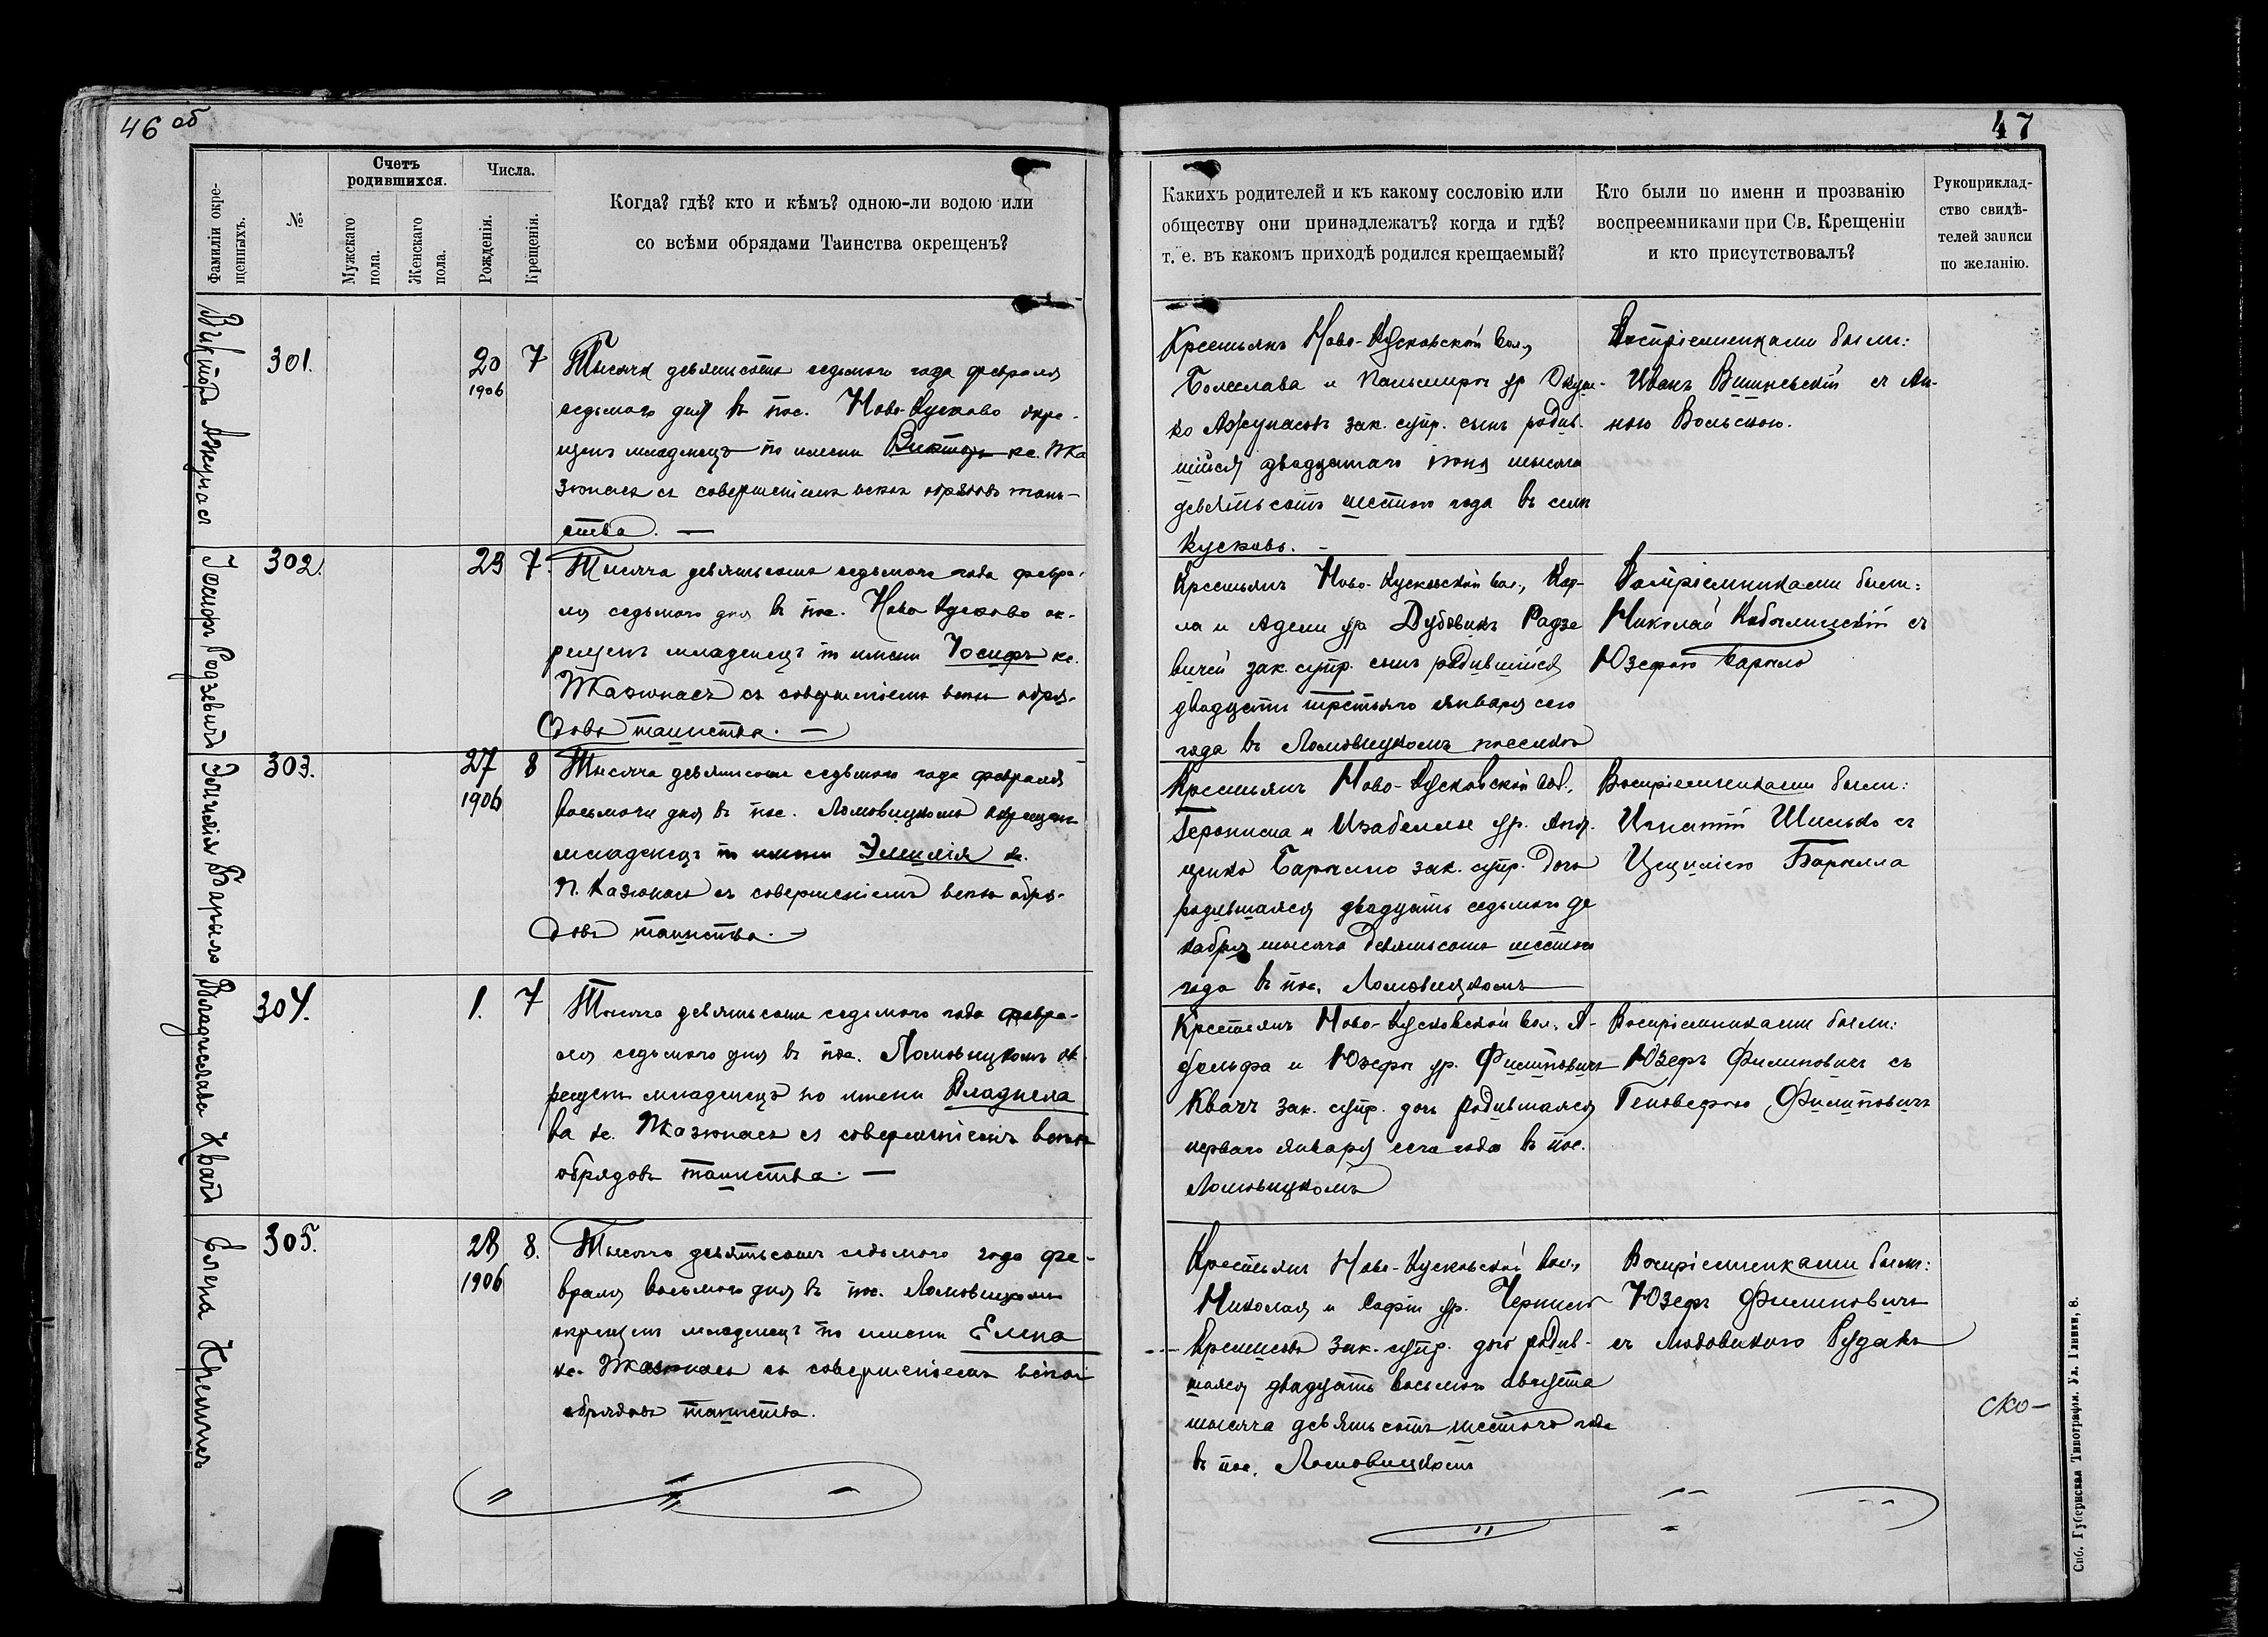 46 об
47
Фамиліи окре-
щенныхъ.
№
Счетъ
родившихся.
Мужскаго
пола.
Женскаго
пола.
Числа.
Рожденія.
Крещенія.
Когда? гдѣ? кто и кѣмъ? одною-ли водою или
со всѣми обрядами Таинства окрещенъ?
Какихъ родителей и къ какому сословію или
обществу они принадлежатъ? когда и гдѣ?
т. е. въ какомъ приходѣ родился крещаемый?
Кто были по имени и прозванію
воспреемниками при Св. Крещеніи
и кто присутствовалъ?
Рукоприклад-
ство свидѣ-
телей записи
по желанію.
Викторъ Ажунас
301.
20
1906
7
Тысяча девятьсотъ седьмого года февраля
седьмого дня въ пос. Ново-Кусково окре-
щенъ младенецъ по имени Викторъ кс.
съ совершеніемъ всѣхъ обрядовъ таин-
ства. —
Крестьянъ Ново-Кусковской вол.,
Болеслава и ур.
зак. супр. сынъ родив-
шійся двадцатаго тысяча
девятьсотъ шестого года въ селѣ
Кусковъ. -
Воспріемниками были:
Иванъ съ Ан-
ною Вольскою.
Іосифъ Радзевичъ
302.
23
7.
Тысяча девятьсотъ седьмого года февра-
ля седьмого дня въ пос. Ново Кусково ок-
рещенъ младенецъ по имени Іосифъ кс.
съ совершеніемъ всѣхъ обря-
довъ таинства. —
Крестьянъ Ново-Кусковской вол., Кар-
ла и Адели ур. Дубовикъ Радзе
вичей зак. супр. сынъ родившійся
двадцать третьяго января сего
года въ Ломовицкомъ поселкѣ
Воспріемниками были:
Николай Кобылинскій съ
Юзефою Барыло
Эмилія Барыло
303.
27
1906
8
Тысяча девятьсотъ седьмого года февраля
восьмого дня въ пос. Ломовицкомъ окрещенъ
младенецъ по имени Эмилія кс.
П. Казюнасъ съ совершеніемъ всѣхъ обря-
довъ таинства. —
Крестьянъ Ново-Кусковской вол.,
Геронима и Изабеллы ур.
Барыло зак. супр. дочь
родившаяся двадцать седьмого де
кабря тысяча девятьсотъ шестого
года въ пос. Ломовицкомъ
Воспріемниками были:
Игнатій Шисько съ
Цециліею Барылла
Владислава Квачъ
304.
1.
7
Тысяча девятьсотъ седьмого года февра-
ля седьмого дня въ пос. Ломовицкомъ ок-
рещенъ младенецъ по имени Владисла
ва кс. съ совершеніемъ всѣхъ
обрядовъ таинства. —
Крестьянъ Ново-Кусковской вол., А-
дольфа и Юзефы ур. Филиповичъ
Квачъ зак. супр. дочь родившаяся
перваго января сего года въ пос.
Ломовицкомъ
Воспріемниками были:
Юзефъ Филиповичъ съ
Геновефою Филиповичъ
Елена Кремисъ
305.
28
1906
8.
Тысяча девятьсотъ седьмого года фе-
враля восьмого дня въ пос. Ломовицкомъ
окрещенъ младенецъ по имени Елена
кс. съ совершеніемъ всѣхъ
обрядовъ таинства.
Крестьянъ Ново-Кусковской вол.,
Николая и Софіи ур.
зак. супр. дочь родив-
шаяся двадцать восьмого августа
тысяча девятьсотъ шестого года
въ пос. Ломовицкомъ
Воспріемниками были:
Юзефъ Филиповичъ
съ Людовикою Рудакъ
ско-
Спб. Губернская Типографія. Ул. Глинки, 8.